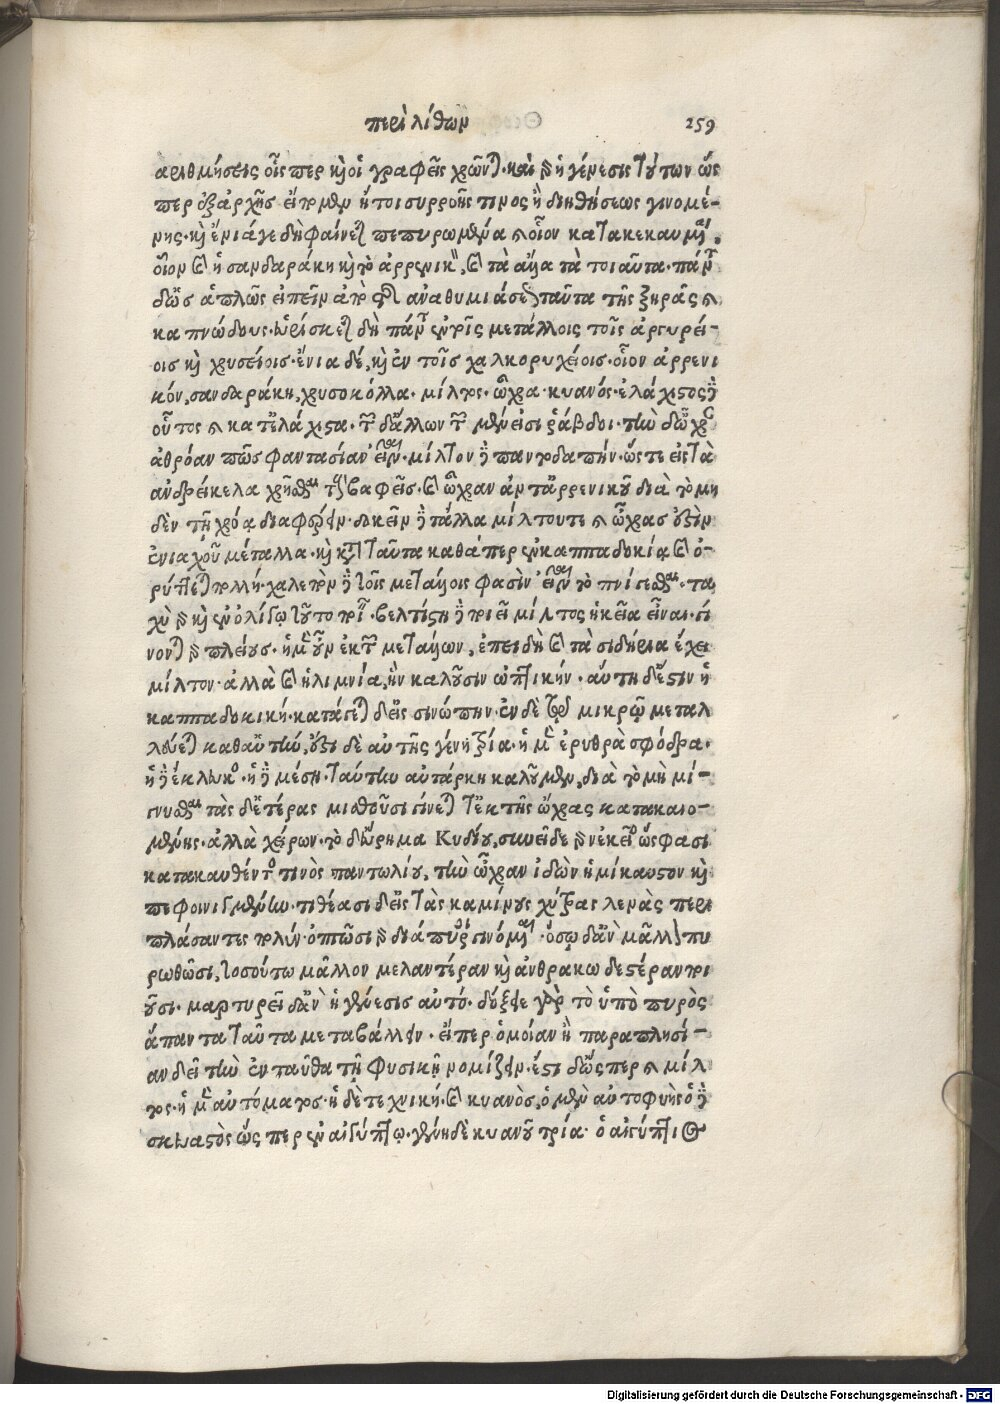 περὶ λίθων
259
αριθμήσεις οἷς περ καὶ οἱ γραφεῖς χρῶνται. καὶ γὰρ ἡ γένεσις τούτων ὥς
περ ἐξ ἀρχῆς εἴπομεν ἤτοι συρροῆς τινος ἢ διηθήσεως γινομέ-
νης. καὶ ἔνια γε δὴ φαίνεται πεπυρωμένα καὶ οἷον κατακεκαυμένα.
οἷον καὶ ἡ σανδαράκη καὶ τὸ ἀρρενικὸν, καὶ τὰ ἄλλα τὰ τοιαῦτα. πάντα
δὼς ἁπλῶς εἰπεῖν ἀπὸ τῆς ἀναθυμιάσεως ταῦτα τῆς ξηρᾶς καὶ
καπνώδους. εὑρίσκεται δὴ πάντα ἐν τοῖς μετάλλοις τοῖς ἀργυρεί-
οις καὶ χρυσείοις. ἔνια δέ, καὶ ἐν τοῖς χαλκορυχείοις. οἷον ἀρρενι
κόν, σανδαράκη, χρυσοκόλλα. μίλτος. ὤχρα. κυανός. ἐλάχιστος δὲ
οὗτος καὶ κατ' ἐλάχιστα. τῶν δ' ἄλλων τῶν μὲν εἰσι ῥάβδοι. τὴν δ' ὤχραν
ἀθρόαν πῶς φαντασίαν εἶναι. μίλτον δὲ παντοδαπήν. ὥστε εἰς τὰ
ανδρείκελα χρῆσθαι τοὺς βαφεῖς. καὶ ὤχραν ἀντ' ἀρρενικοῦ διὰ τὸ μη
δὲν τῇ χρόᾳ διαφέρειν. δοκεῖν δὲ τἄλλα μίλτου τε καὶ ὤχρας ἐστὶν
ἐνιαχοῦ μέταλλα. καὶ κατὰ ταῦτα καθάπερ ἐν καππαδοκίᾳ καὶ ὀ-
ρύττεται πολλή. χαλεπὸν δὲ τοῖς μεταλλοις φασὶν εἶναι τὸ πνίγεσθαι. τα
χὺ γὰρ καὶ ἐν ὀλίγῳ τοῦτο ποιεῖ. βελτίστη δὲ ποιεῖ μίλτος ἡ κεῖα εἶναι. γί
νονται γὰρ πλείους. ἡ μὲν οὖν ἐκ τῶν μετάλλων, ἐπειδὴ καὶ τὰ σιδήρια ἔχει
μίλτον. ἀλλὰ καὶ ἡ λιμνία, ἣν καλοῦσιν ὠπτικήν. αὕτη δ' ἔστιν ἡ
καππαδοκική. κατάγεται δ' εἰς σινώπην. ἐν δὲ τῷ μικρῷ μεταλ
λεύεται καθ' αὑτήν, ἔστι δὲ αὐτῆς γένη τρία. ἡ μὲν ἐρυθρὰ σφόδρα.
ἡ δὲ ἔκλευκος. ἡ δὲ μέση. ταύτην αὐτάρκη καλοῦμεν, διὰ τὸ μὴ μί-
γνυσθαι τὰς δ' ἑτέρας μιγνῦσι γίνεται δ' ἐκ τῆς ὤχρας κατακαιο-
μένης. ἀλλὰ χείρων. τὸ δ' εὕρημα Κυδίου, συνεῖδε γὰρ ἐκεῖνος ὥς φασι
κατακαυθέντος τινὸς παντωλίου, τὴν ὤχραν ἰδὼν ἡμίκαυστον καὶ
πεφοινιγμένην. τιθέασι δ' εἰς τὰς καμίνους χύτρας κενὰς περι
πλάσαντες πηλῷ. ὀπτῶσι γὰρ διάπυροι γινόμεναι. ὅσῳ δ' ἂν μᾶλλον πυ
ρωθῶσι, τοσούτω μᾶλλον μελαντέραν καὶ ἀνθρακωδεστέραν ποι
οῦσι. μαρτυρεῖ δ' ἂν ἡ γένεσις αὐτό. δόξειε γὰρ τὸ ὑπὸ πυρὸς
ἅπαντα ταῦτα μεταβάλλειν. εἴπερ ὁμοίαν ἢ παραπλησί-
αν δεῖ τὴν ἐνταῦθα τῇ φυσικῇ νομίζειν. ἔστι δ' ὥσπερ καὶ μίλ
τος. ἡ μὲν αὐτόματος. ἡ δὲ τεχνική. καὶ κυανὸς, ὁ μὲν αὐτοφυὴς ὁ δὲ
σκευαστὸς ὥς περ ἐν αἰγύπτῳ. γένη δὲ κυανοῦ τρία. ὁ αἰγύπτιος
Digitalisierung gefördert durch die Deutsche Forschungsgemeinschaft - DFG